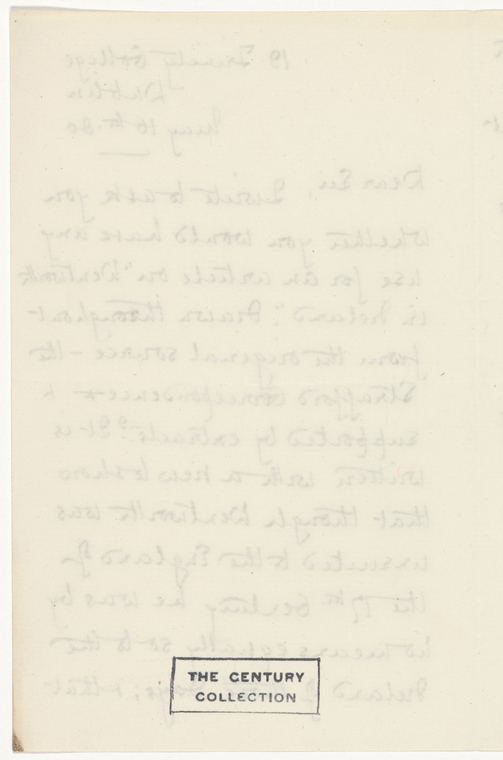 19 Trinity College
Dublin
May 16th 90
Dear Sir, I write to ask you
whether you would have any
use for an article on "Wentworth
in Ireland". Drawn throughout
from the original source - the
Strafford correspondence &
supported by extracts. It is
written with a view to show
that though Wentworth was
unsuited to the England of
the 17th Century he was by
no means equally so to the
Ireland of those days; & that
THE CENTURY
COLLECTION